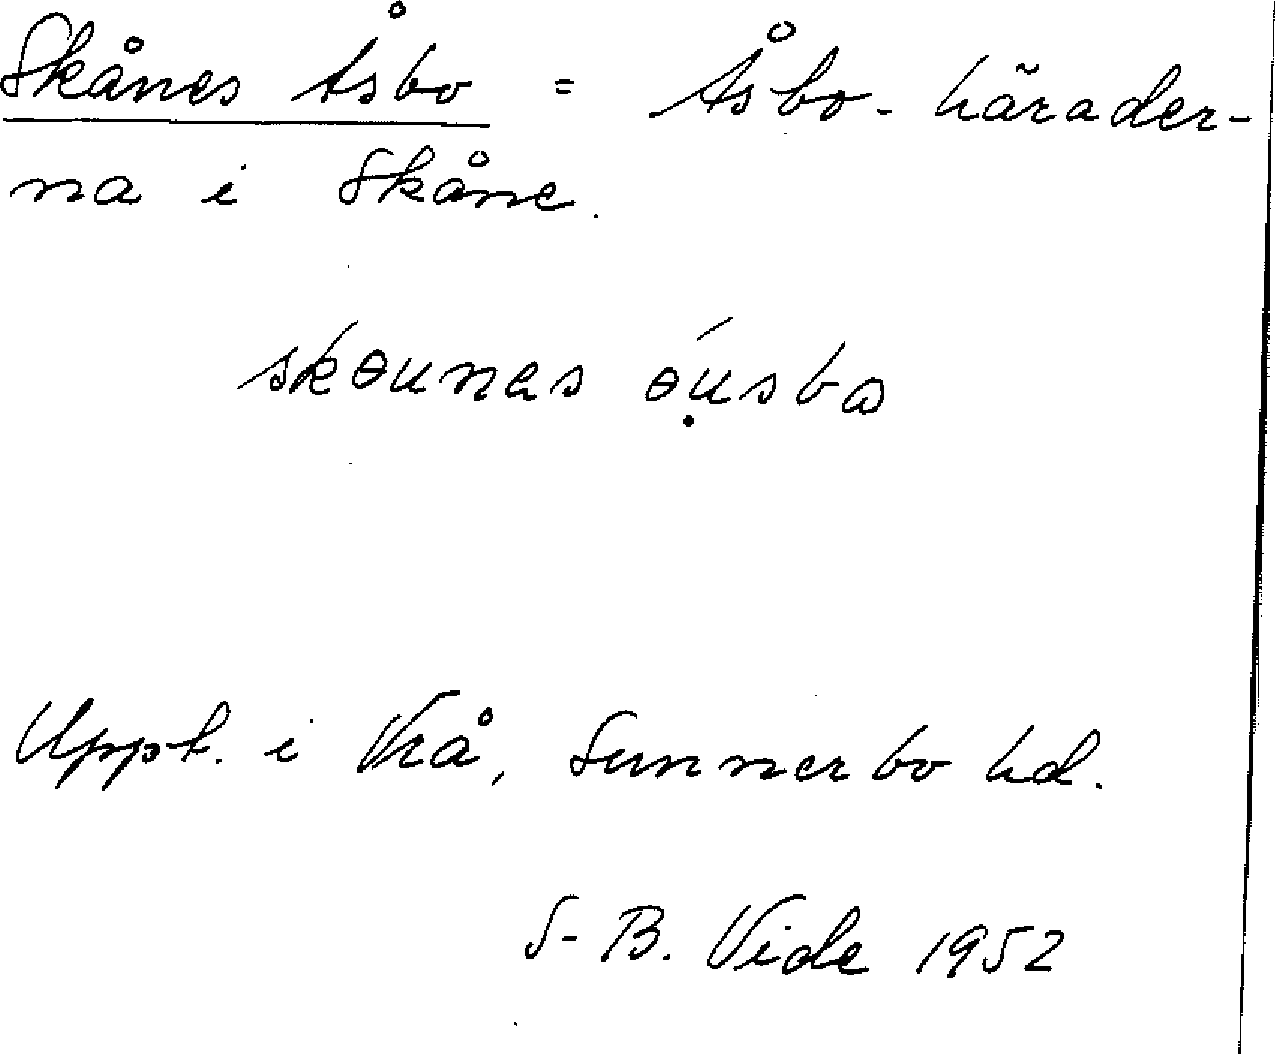 Skånes Åsbo = Åsbo-härader-
na i Skåne.
skɵunas ɵ́ụsbɷ
Uppt. i Vrå, Sunnerbo hd.
S-B. Vide 1952